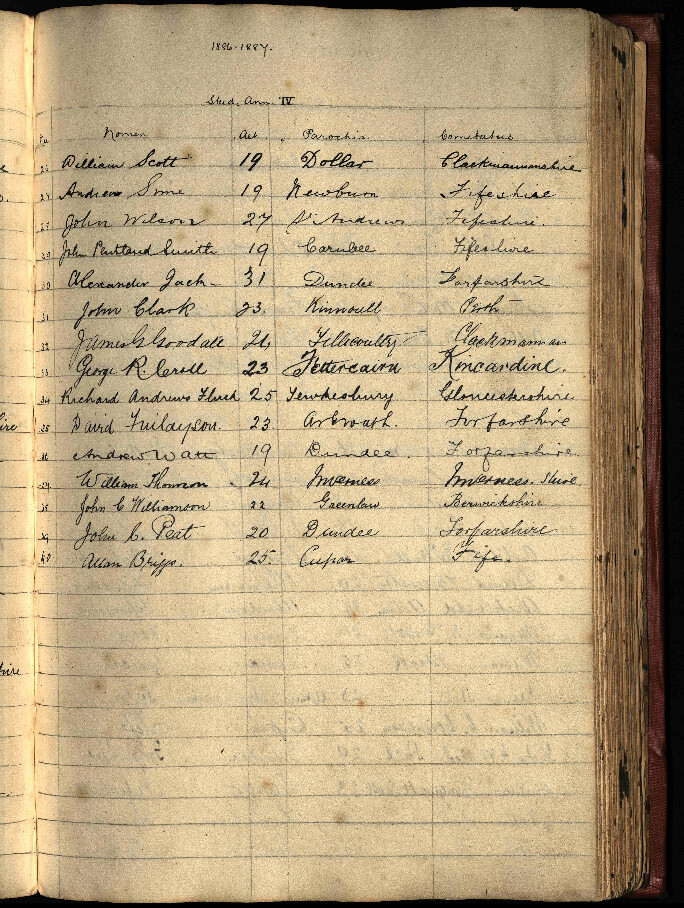 1886-1887.
Stud. Ann. IV
Nomen Aet. Parochia Comitatus
26 William Scott 19 Dollar Clackmannanshire
27 Andrew Sime 19 Newburn Fifeshire
28 John Wilson 27 St Andrews Fifeshire.
29 John Pentland Smith 19 Carnbee Fifeshire
30 Alexander Jack 31 Dundee Forfarshire
31 John Clark 23. Kinnoull Perth
32 James G Goodall 24 Tillicoultry Clackmannan
33 George R. Croll 23 Fettercairn Kincardine.
34 Richard Andrews Fluck 25 Tewkesbury Gloucestershire
35 David Finlayson. 23. Arbroath. Forfarshire
36 Andrew Watt 19 Dundee. Forfarshire
37 William Thomson 24 Inverness Inverness-shire
38 John C Williamson 22 Greenlaw Berwickshire
39 John C. Peat 20 Dundee Forfarshire
40 Allan Briggs. 25. Cupar Fife.